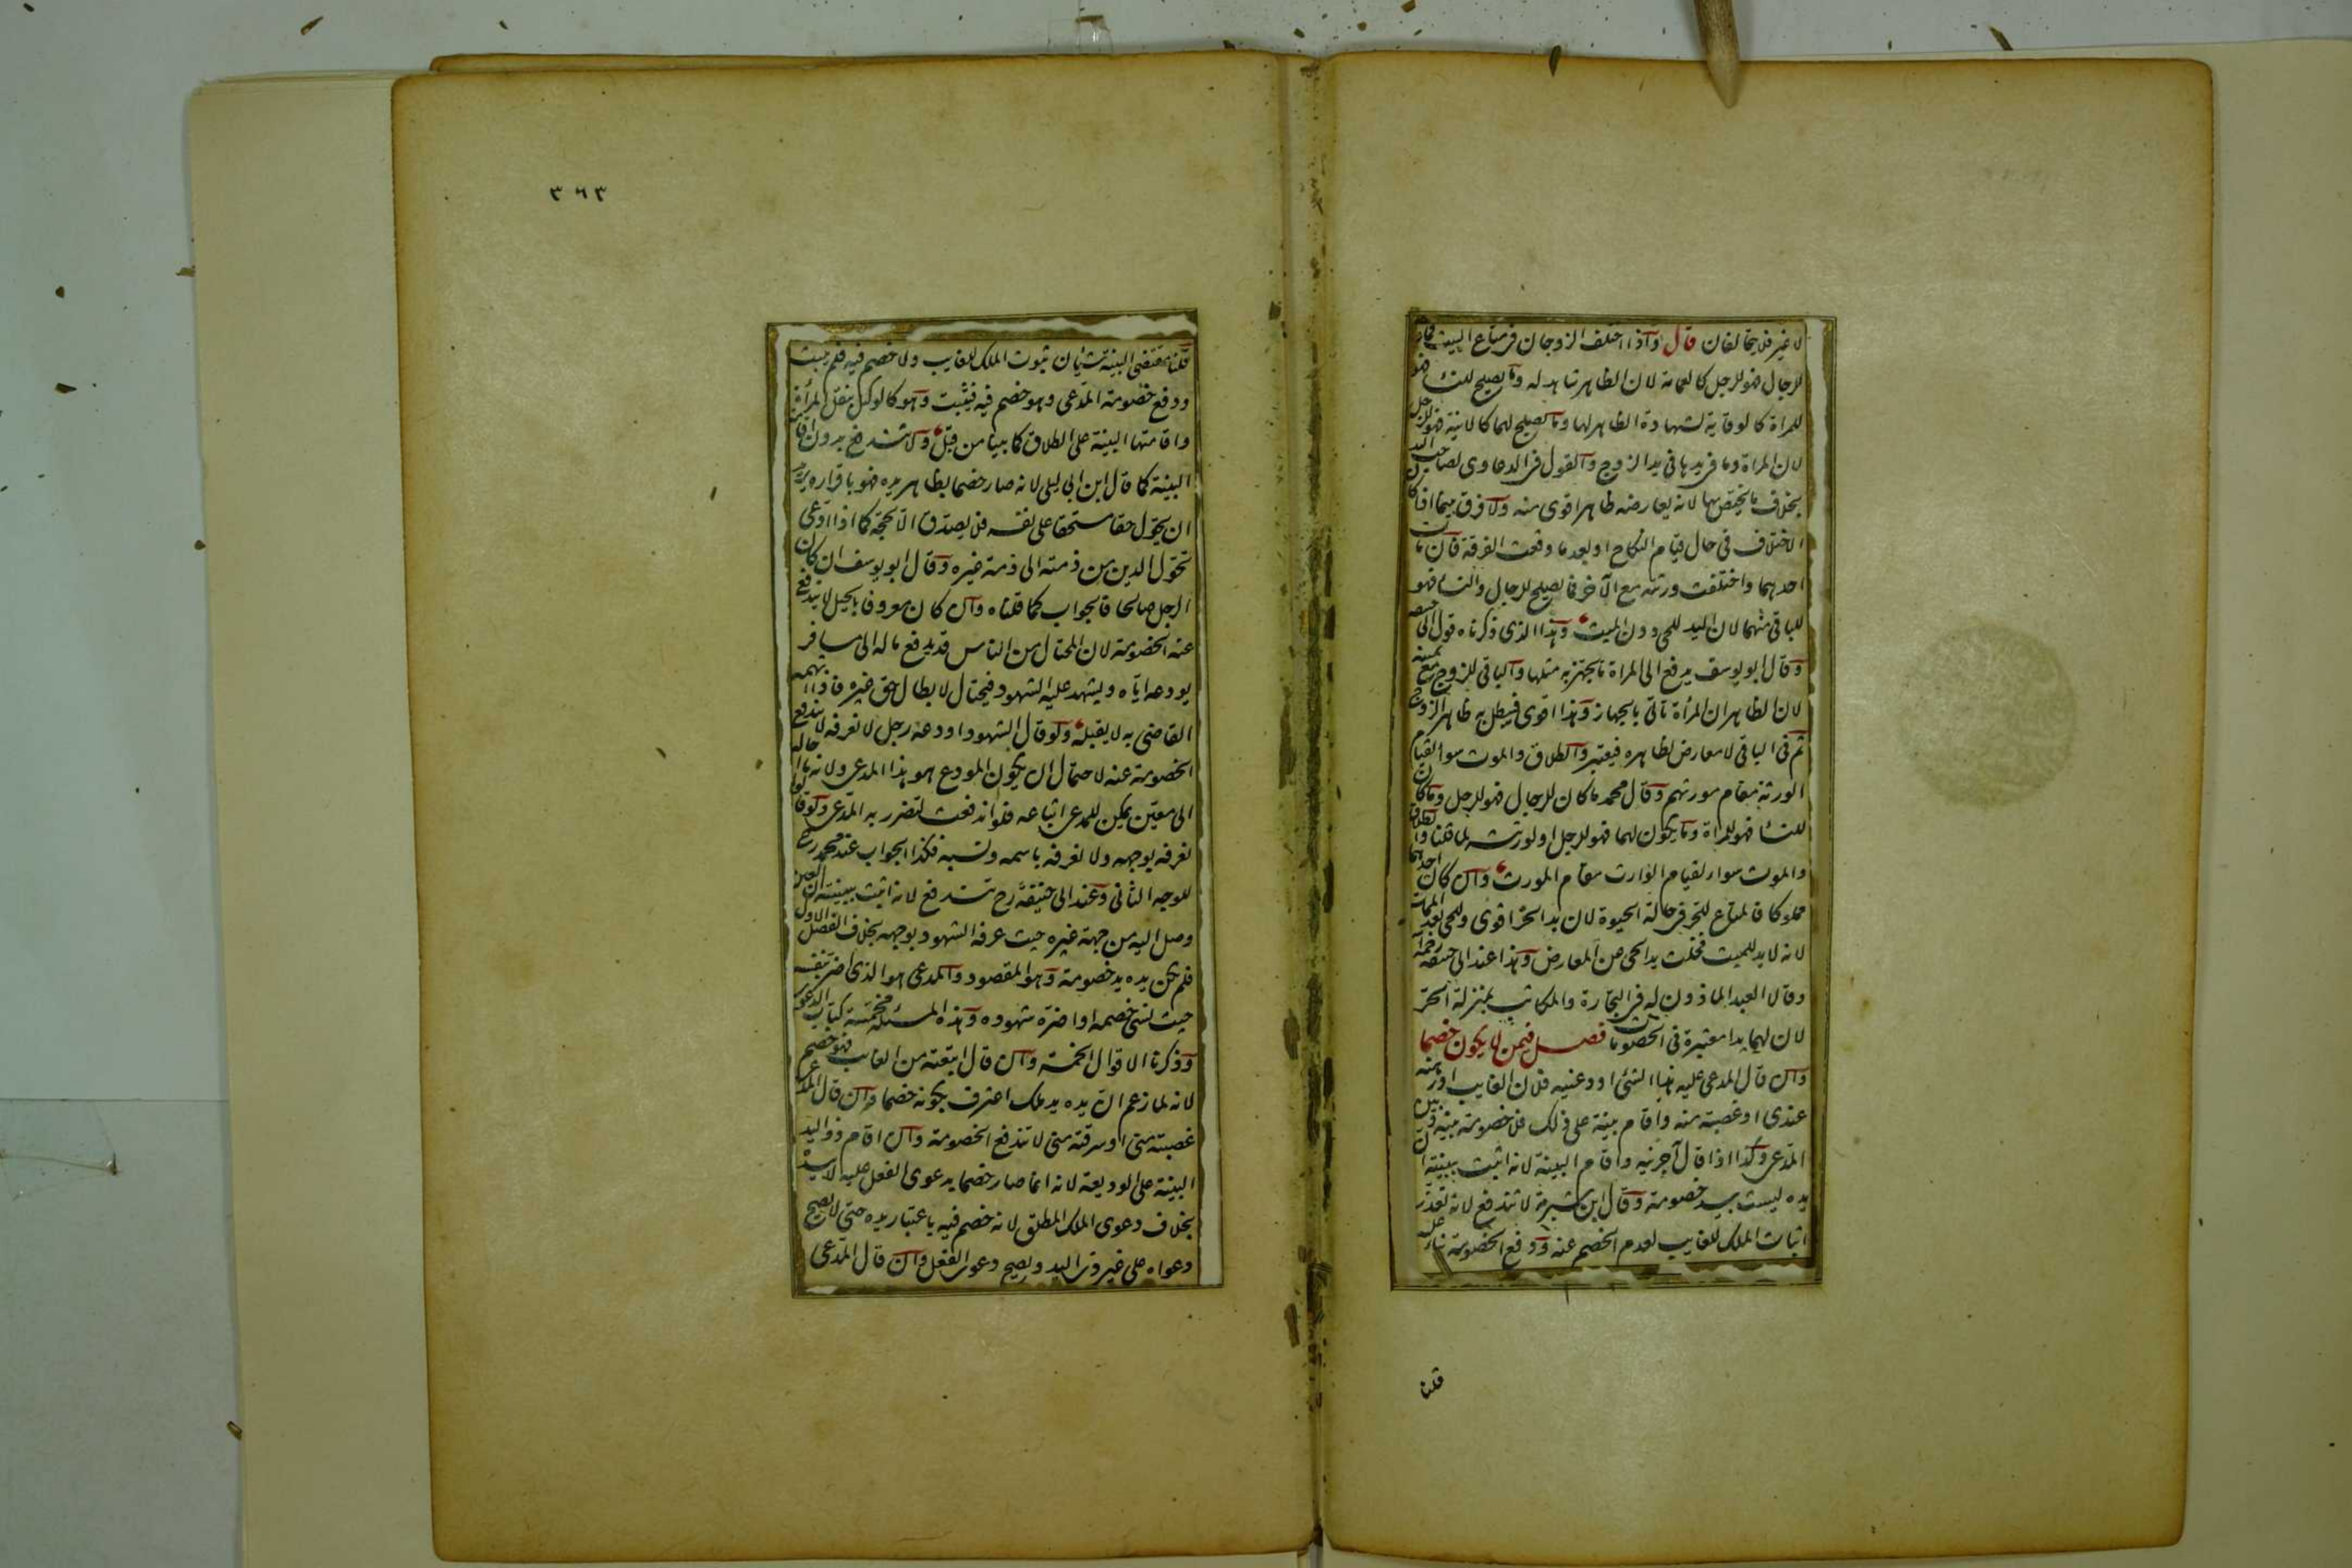 لا غير فلا يتحالفان قال واذا اختلف الزوجان فى متاع البيت فما
للرجال فهو للرجل كالعمامة لان الظاهر شاهد له وما يصلح للنساء فهو
للمراة كالوقاية لشهادة الظاهر لها وما يصلح لهما كالانية فهو للرجل
لان المراة وما فى يدها فى يد الزوج والقول فى الدعاوى لصاحب اليد
بخلاف ما يختص بها لانه يعارضه ظاهر اقوى منه ولا فرق بينما اذا كان
الاختلاف فى حال قيام النكاح او بعد ما وقعت الفرقة فان مات
احدهما واختلفت ورثته مع الآخر فما يصلح للرجال والنساء فهو
للباقى منهما لان اليد للحى دون الميت وهذا الذى ذكرناه قول ابى حنيفه
وقال ابو يوسف يدفع الى المراة ما يجهز به مثلها والباقى للزوج مع يمينه
لان الظاهر ان المرأة تاتى بالجهاز وهذا اقوى فيبطل به ظاهر الزوج
ثم فى الباقى لا معارض لظاهره فيعتبر والطلاق والموت سواء لقيام
الورثة مقام مورثهم وقال محمد ما كان للرجال فهو للرجل وما كان
للنساء فهو للمراة وما يكون لهما فهو للرجل او لورثته لما قلنا والطلاق
والموت سواء لقيام الوارث مقام المورث وان كان احدهما
مملوكا فالمتاع للحر فى حالة الحيوة لان يد الحر اقوى وللحى بعد الممات
لانه لا يد للميت فخلت يد الحى عن المعارض وهذا عند ابى حنيفه رحمه الله
وقالا العبد الماذون له فى التجارة والمكاتب بمنزلة الحر
لان لهما يدا معتبرة فى الخصومات فصل فيمن لا يكون خصما
وان قال المدعى عليه هذا الشئ اودعنيه فلان الغايب او رهنه
عندى او غصبته منه واقام بينة على ذلك فلا خصومة بينه وبين
المدعى وكذا اذا قال آجرنيه واقام البينة لانه اثبت ببينته ان
يده ليست بيد خصومة وقال ابن شبرمة لا تندفع لانه تعذر
اثبات الملك للغايب لعدم الخصم عنه ودفع الخصومة بناء عليه
قلنا
٣٦٣
قلنا مقتضى البينة شيئان ثبوت الملك للغايب ولا خصم فيه فلم يثبت
ودفع خصومة المدعى وهو خصم فيه فيثبت وهو كالوكيل بنقل المرأة
واقامتها البينة على الطلاق كما بينا من قبل ولا تندفع بدون اقامة
البينة كما قال ابن ابى ليلى لانه صار خصما بظاهر يده فهو باقراره يريد
ان يحول حقا مستحقا على نفسه فلا يصدق الا بحجة كما اذا ادعى
تحول الدين من ذمته الى ذمة غيره وقال ابو يوسف ان كان
الرجل صالحا فالجواب كما قلناه وان كان معروفا بالحيل لا تندفع
عنه الخصومة لان المحتال من الناس قد يدفع ماله الى مسافر
يودعه اياه ويشهد عليه الشهود فيحتال لابطال حق غيره فاذا اتهمه
القاضى به لا يقبله ولو قال الشهود اودعه رجل لا نعرفه لا تندفع
الخصومة عنه لاحتمال ان يكون المودع هو هذا المدعى ولانه ما احاله
الى معين يمكن للمدعى اتباعه فلو اندفعت لتضرر به المدعى ولو قالوا
نعرفه بوجهه ولا نعرفه باسمه ونسبه فكذا الجواب عند محمد رح
للوجه الثانى وعند ابى حنيفة رح تندفع لانه اثبت ببينته ان العين
وصل اليه من جهة غيره حيث عرفه الشهود بوجهه بخلاف الفصل الاول
فلم تكن يده يد خصومة وهو المقصود والمدعى هو الذى اضر بنفسه
حيث نسى خصمه او اضره شهوده وهذه المسئلة مخمسة كتاب الدعوى
وذكرنا الاقوال الخمسة وان قال ابتعته من الغايب فهو خصم
لانه لما زعم ان يده يد ملك اعترف بكونه خصما وان قال المدعى
غصبته منى او سرقته منى لا تندفع الخصومة وان اقام ذو اليد
البينة على الوديعة لانه انما صار خصما بدعوى الفعل عليه لا بيده
بخلاف دعوى الملك المطلق لانه خصم فيه باعتبار يده حتى لا يصح
دعواه على غير ذى اليد ويصح دعوى الفعل وان قال المدعى